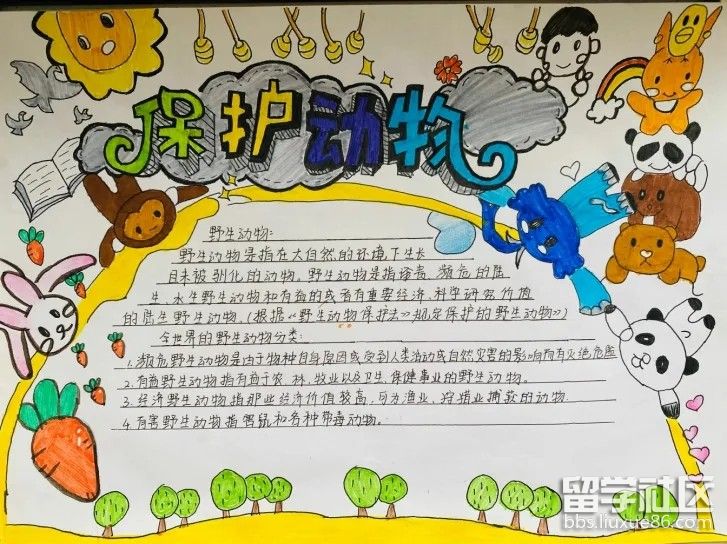 保护动物
野生动物:
野生动物是指在大自然的环境下生长
且未被驯化的动物。野生动物是指珍贵、濒危的陆
生、水生野生动物和有益的或者有重要经济、科学研究价值
的陆生野生动物。(根据《野生动物保护法》规定保护的野生动物》)
全世界的野生动物分类:
1.濒危野生动物是由于物种自身原因或受到人类活动或自然灾害的影响而有灭绝危险
2.有益野生动物指有益于农、林、牧业以及卫生、保健事业的野生动物。
3.经济野生动物指那些经济价值较高,可为渔业、狩猎业捕获的动物
4.有害野生动物指害鼠和各种带毒动物。
留学社区
bbs.liuxue86.com